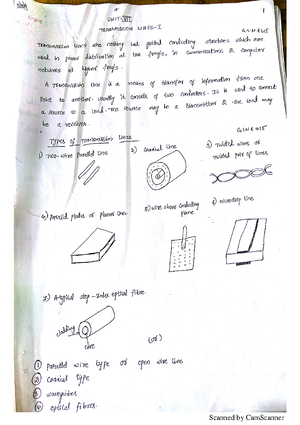 1
UNIT-VII
TRANSMISSION LINES-I
Transmission lines are nothing but guided conducting structures which are
used in power distribution at low freq/s. in communications & computer
networks at higher freq/s.
A Transmission line is a means of transfer of information from one
point to another. usually it consists of two conductors. It is used to connect
a source to a load. The source may be a transmitter & the load may
be a receiver.
Types of Transmission Lines
1) Two-wire Parallel Line
2) Coaxial Line
3) Twisted wires or
twisted pair of lines
4) Parallel plates or planar line
5) wire above conducting
plane
6) microstrip line
7) A typical step-index optical fibre
cladding
core
(or)
1 parallel wire type or open wire line
2 coaxial type
3 waveguides
4 optical fibres.
Scanned by CamScanner